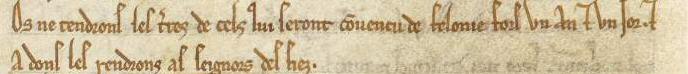 Os ne tendronſ leſ t̄reſ de celſ q̇ui ſeront co̅uencu de felonie forſ vn An ⁊ vn Ior. ⁊
Adonſ leſ rendronſ aſ ſeignorſ del fiez.